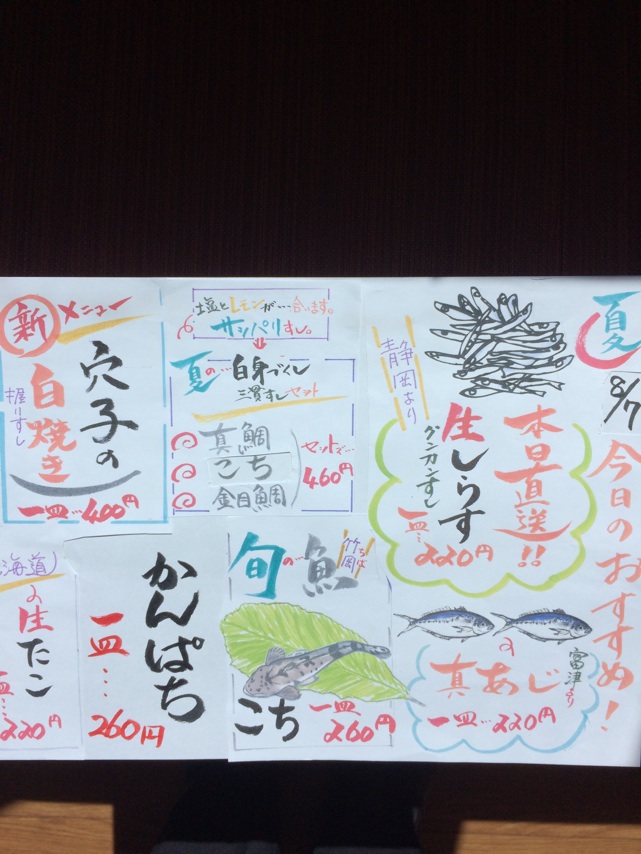 夏
8/7
今日のおすすめ!
静岡より
本日直送!!
生しらす
グンカンすし
一皿…220円
富津より
真あじ
一皿…220円
塩とレモンが…合います。
サッパリすし。
夏の…白身づくし
三貫すしセット
真鯛
こち
金目鯛
セットで…
460円
新メニュー
穴子の
白焼き
握りすし
一皿…400円
旬の…魚
ちば
竹岡
こち
一皿…
260円
かんぱち
一皿…
260円
海道
の生たこ
一皿…
220円